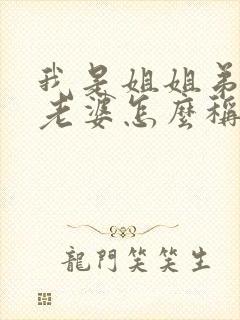 我是姐姐弟
老婆怎麼稱
龍門笑笑生